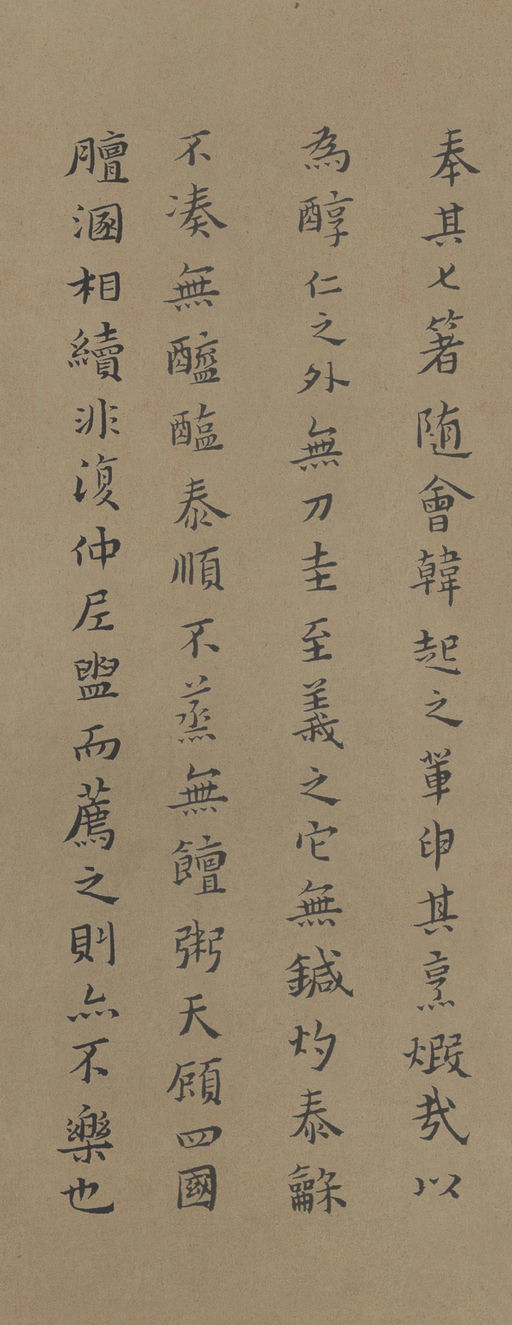 奉其匕箸随會韓起之輩申其烹煆哉以
為醇仁之外無刀圭至義之它無鍼灼泰龢
不湊無醯醢泰順不蒸無饘粥天頋四國
膻溷相續非復仲尼盥而薦之則亦不樂也